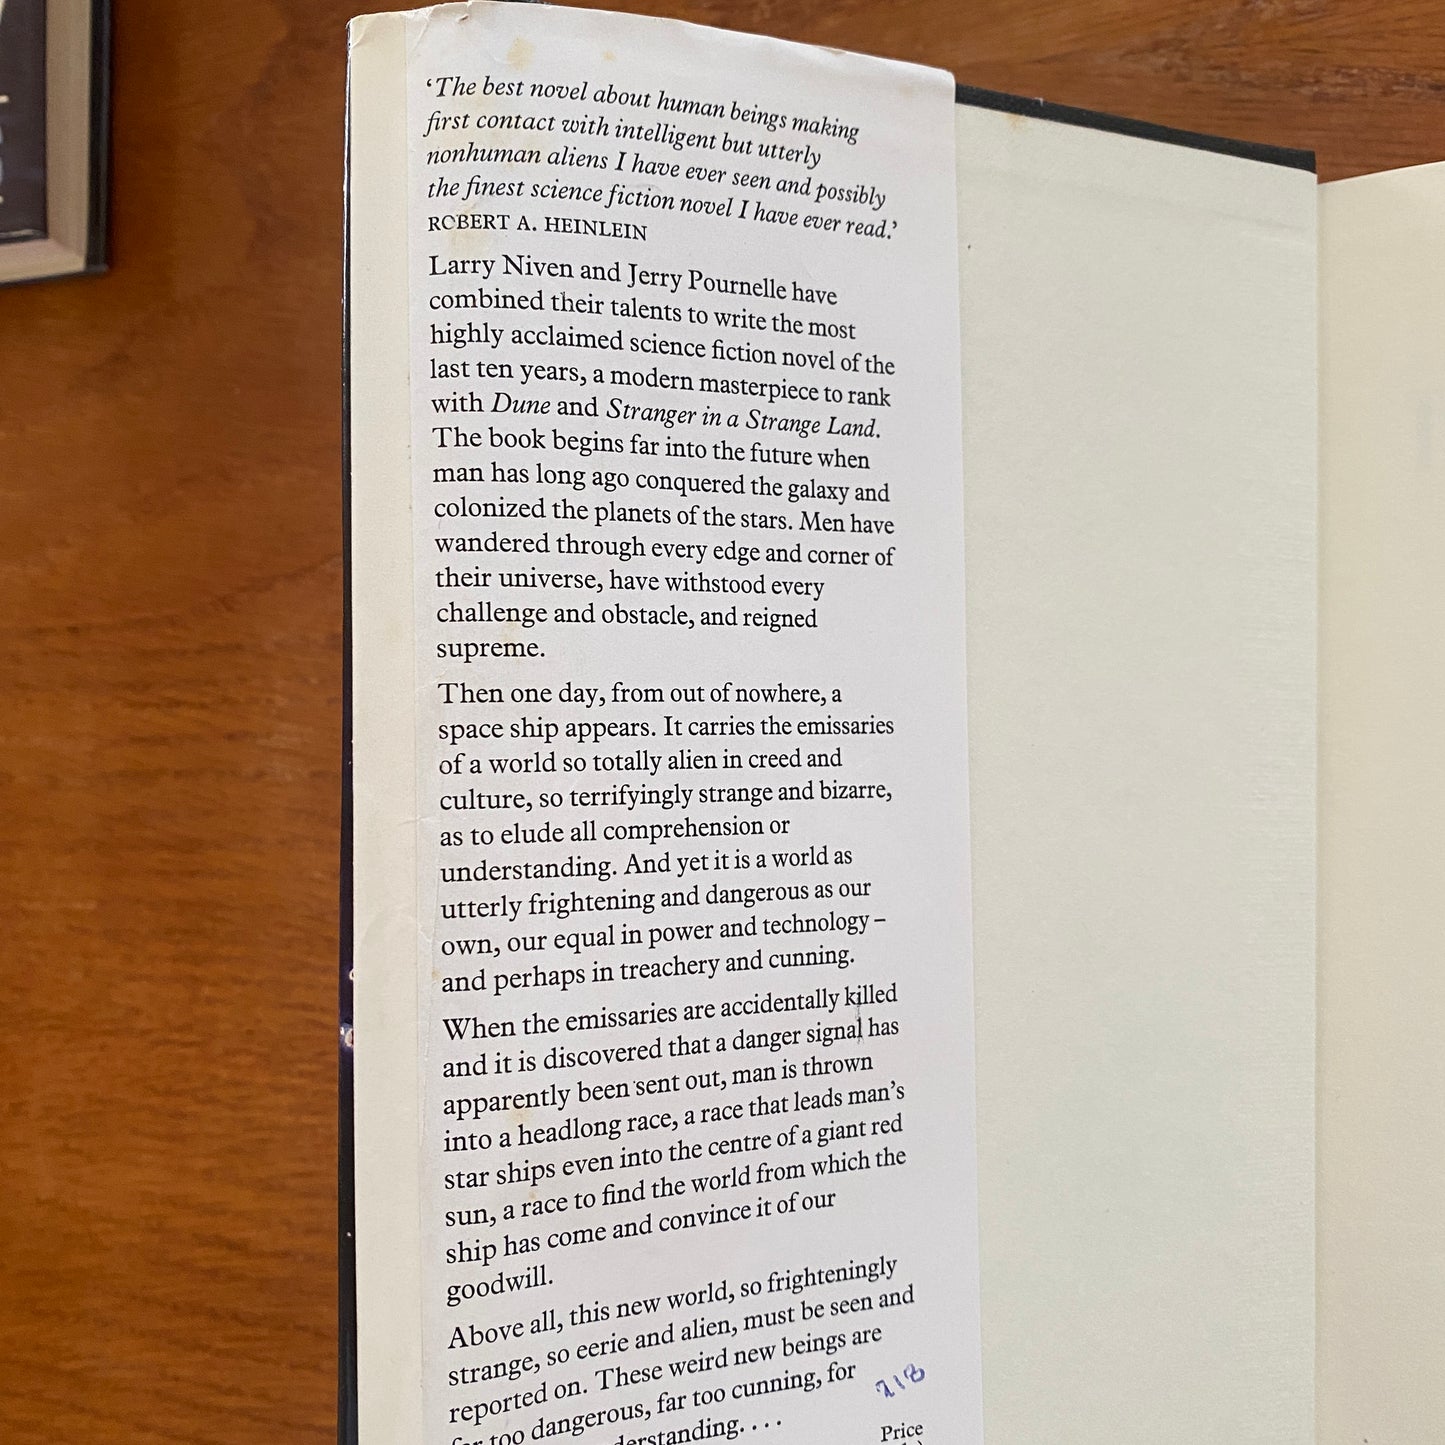 ‘The best novel about human beings making
first contact with intelligent but utterly
nonhuman aliens I have ever seen and possibly
the finest science fiction novel I have ever read.’
ROBERT A. HEINLEIN
Larry Niven and Jerry Pournelle have
combined their talents to write the most
highly acclaimed science fiction novel of the
last ten years, a modern masterpiece to rank
with Dune and Stranger in a Strange Land.
The book begins far into the future when
man has long ago conquered the galaxy and
colonized the planets of the stars. Men have
wandered through every edge and corner of
their universe, have withstood every
challenge and obstacle, and reigned
supreme.
Then one day, from out of nowhere, a
space ship appears. It carries the emissaries
of a world so totally alien in creed and
culture, so terrifyingly strange and bizarre,
as to elude all comprehension or
understanding. And yet it is a world as
utterly frightening and dangerous as our
own, our equal in power and technology –
and perhaps in treachery and cunning.
When the emissaries are accidentally killed
and it is discovered that a danger signal has
apparently been sent out, man is thrown
into a headlong race, a race that leads man’s
star ships even into the centre of a giant red
sun, a race to find the world from which the
ship has come and convince it of our
goodwill.
Above all, this new world, so frighteningly
strange, so eerie and alien, must be seen and
reported on. These weird new beings are
far too dangerous, far too cunning, for
derstanding. . . .
218
Price